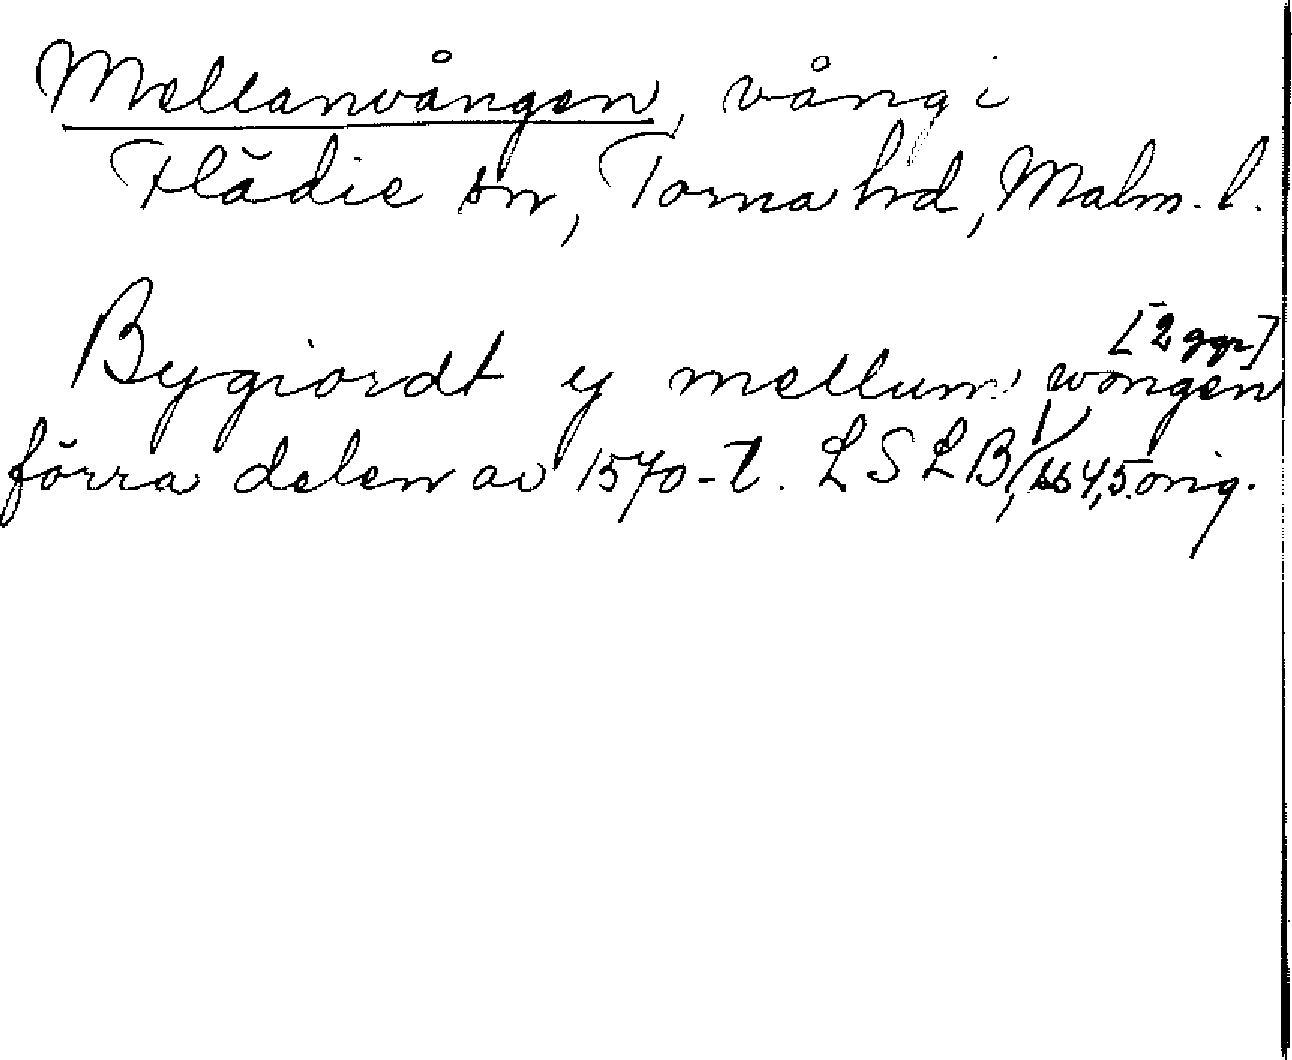 Mellanvången, vång i
Flädie sn, Torna hrd, Malm. l.
[2 ggr]
Bygiordt y mellum wongen
förra delen av 1570-t. LSLB, 4,5 orig.